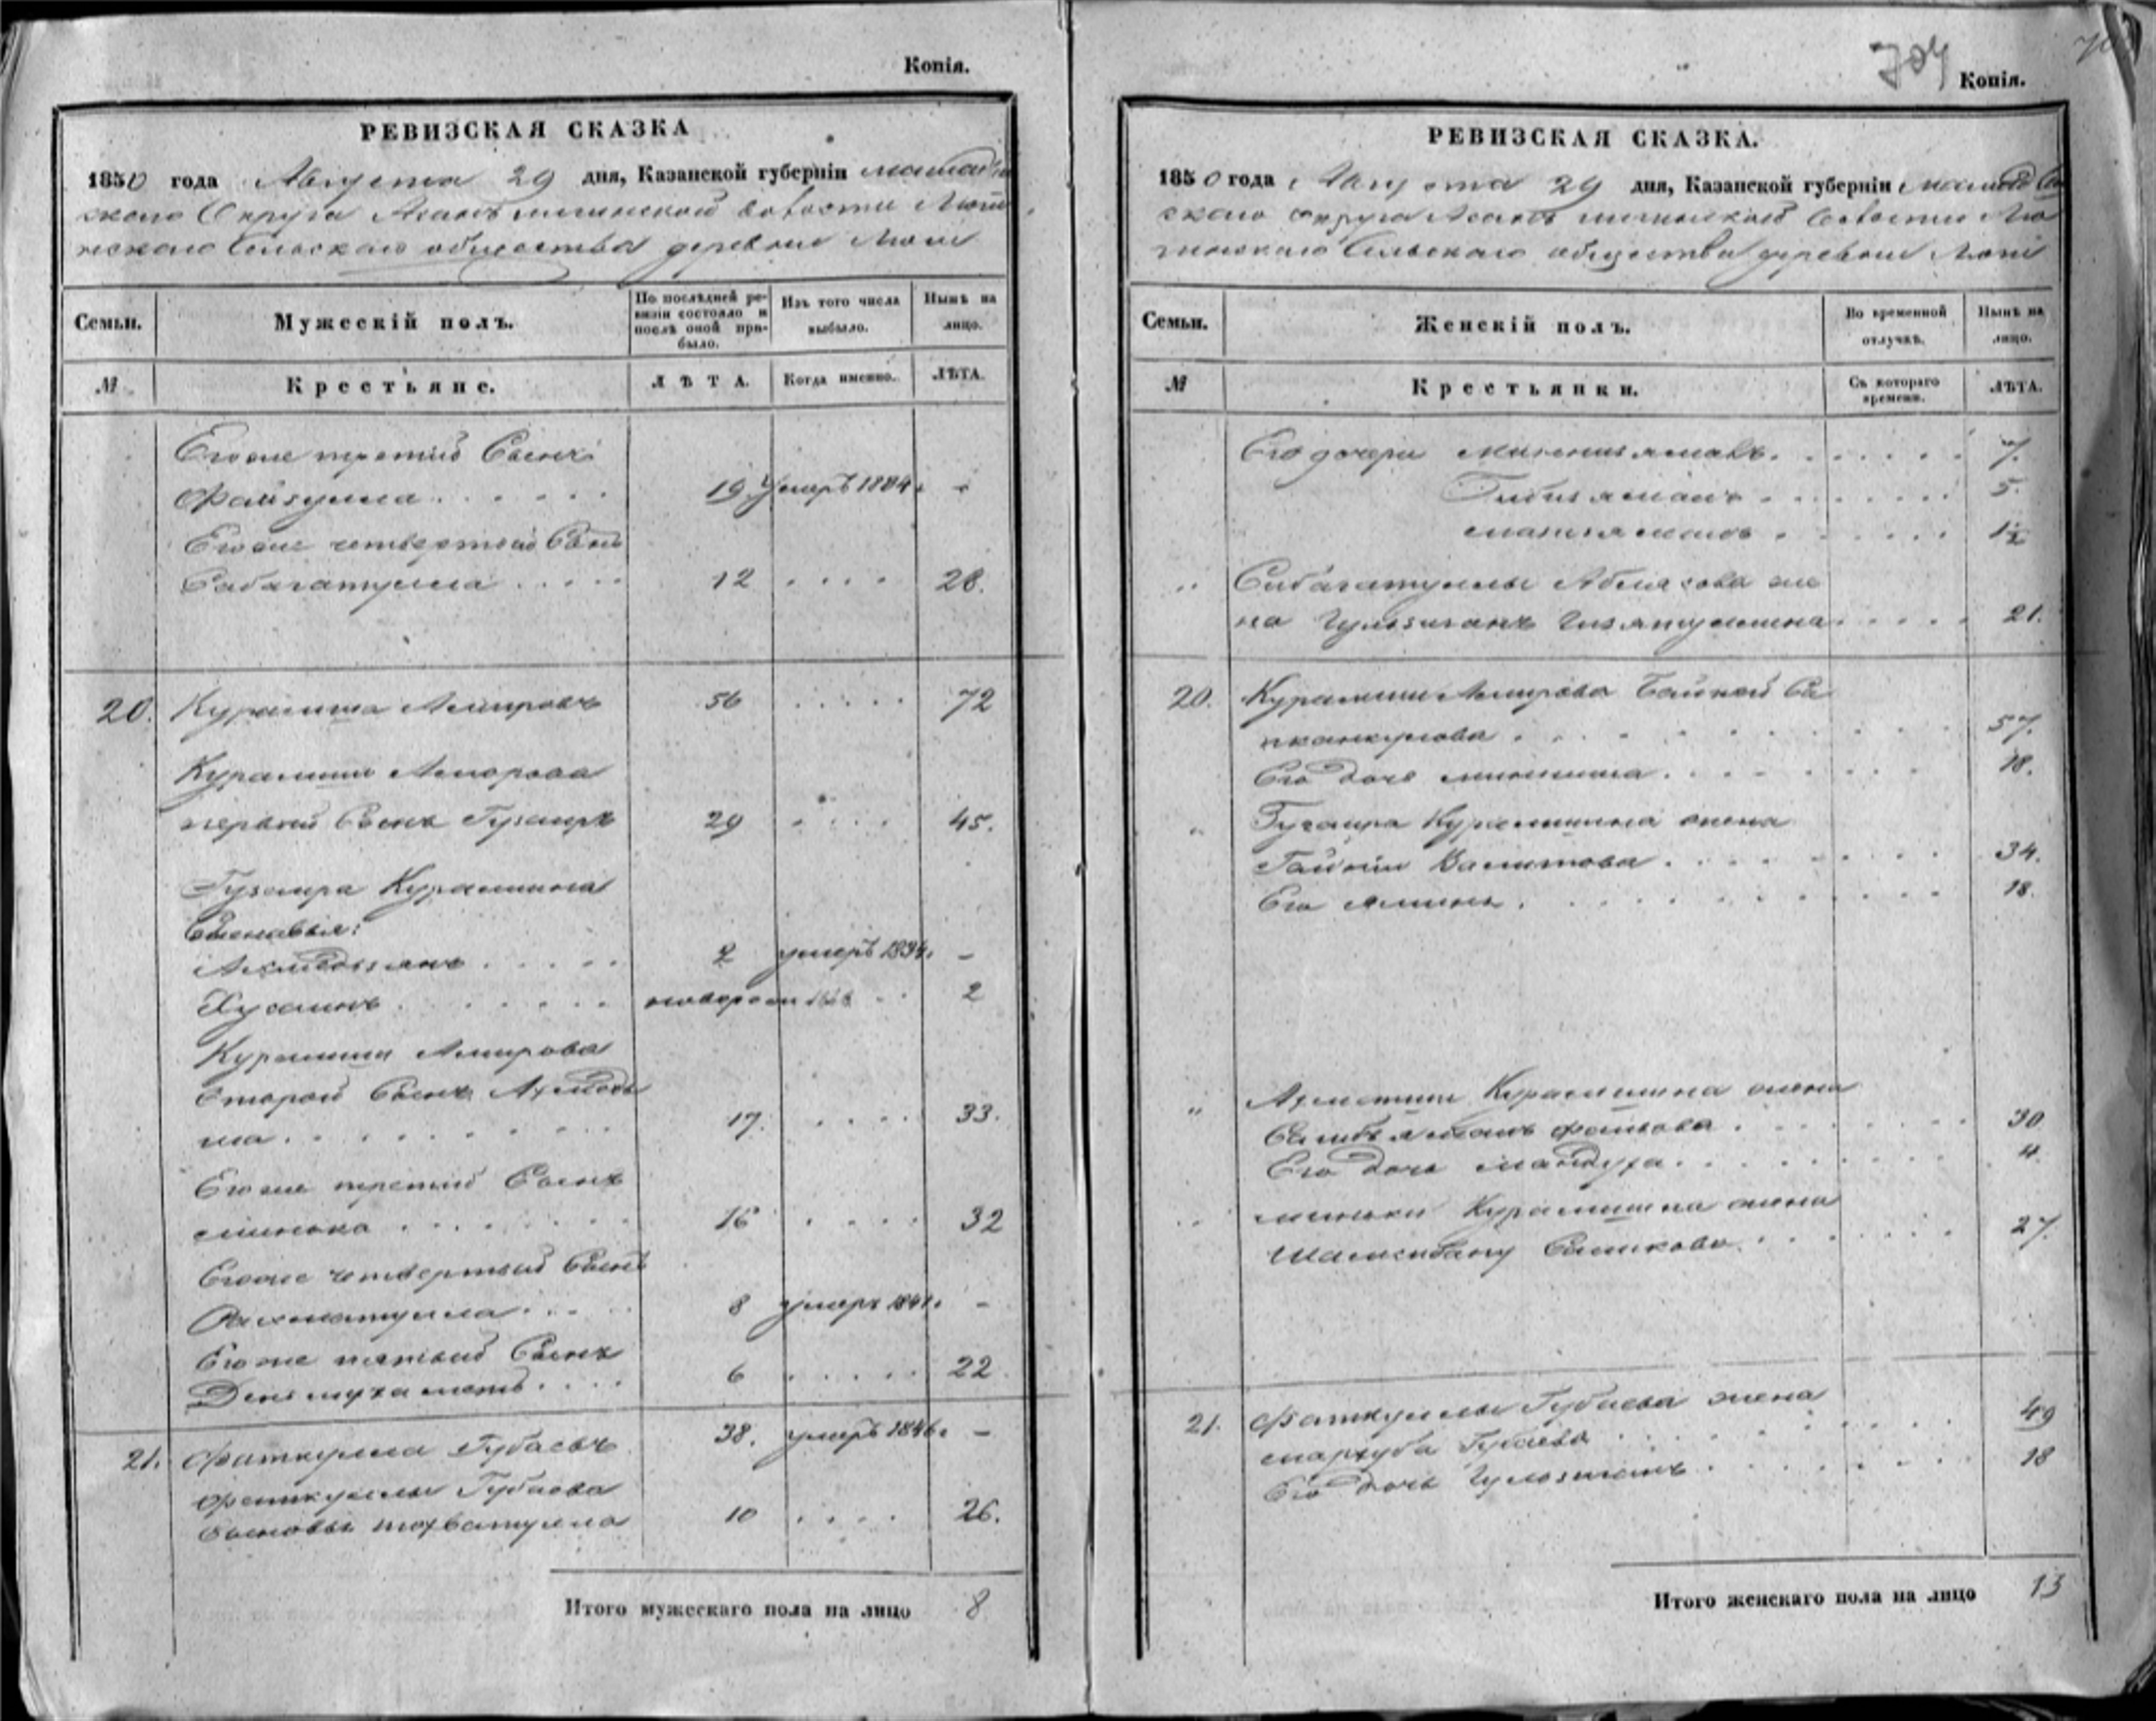 Копія.
РЕВИЗСКАЯ СКАЗКА
1850 года Августа 29 дня, Казанской губерніи мамадыш
скаго Округа волости
нскаго Сельскаго общества деревни
Семьи.
Мужескій полъ.
По послѣдней ре-
визіи состояло и
послѣ оной при-
было.
Изъ того числа
выбыло.
Нынѣ на
лицо.
№
Крестьяне.
ЛѢТА.
Когда именно.
ЛѢТА.
Егоже третий Сынъ
Файзулла . . . . . . 19 Умеръ 1844. -
Егоже четвертый Сынъ
Сабагатулла . . . . . 12 . . . . 28.
20. Курамша Амировъ 56 . . . . . 72
Курамши Амирова
первый Сынъ Гузаиръ 29 . . . . 45.
Гузаира Курамшина
Сыновья:
Ахмедзянъ . . . . . 2 умеръ 1834. -
Хусаинъ . . . . . . новорож 1848 . . 2
Курамши Амирова
Второй Сынъ Ахмедь
ша . . . . . . . . . 17. . . . . 33.
Егоже третий Сынъ
минька . . . . . . . 16 . . . . 32
Егоже четвертый Сынъ
Рахматулла . . . . 8 умеръ 1841. -
Егоже пятый Сынъ
Денмухаметь . . . . 6 . . . . . 22
21. Фаткулла Губаевъ 38. умеръ 1846. -
Фаткуллы Губаева
Сыновья тохватулла 10 . . . . 26.
Итого мужескаго пола на лицо 8
704
Копія.
РЕВИЗСКАЯ СКАЗКА.
1850 года Августа 29 дня, Казанской губерніи мамадыш
скаго округа волости
Сельскаго общества деревни
Семьи.
Женскій полъ.
Во временной
отлучкѣ.
Нынѣ на
лицо.
№
Крестьянки.
Съ котораго
времени.
ЛѢТА.
Его дочери . . . . . . 7.
Бибиямалъ . . . . . . . 5.
. . . . . . 1½
„ Сабагатуллы Аблязова же
на Гульзиганъ Гизятуллина . . . . . 21.
20. Курамши Амирова Байной Са
. . . . . . . . . . 57.
Его дочь миншша . . . . . . . 18.
„ Гузаира Курамшина жена
Валитова . . . . . . . . 34.
Его . . . . . . . . . . . 18.
„ Ахметши Курамшина жена
Фаизова . . . . . . . 30
Его дочь махдуха . . . . . . . . 4.
„ миньки Курамшина жена
Шамсибану Салихова . . . . . . . 27.
21. Фаткуллы Губаева жена
мархуба Губаева . . . . . . . . . 49
Его дочь Гульзиганъ . . . . . . . . 18
Итого женскаго пола на лицо 13